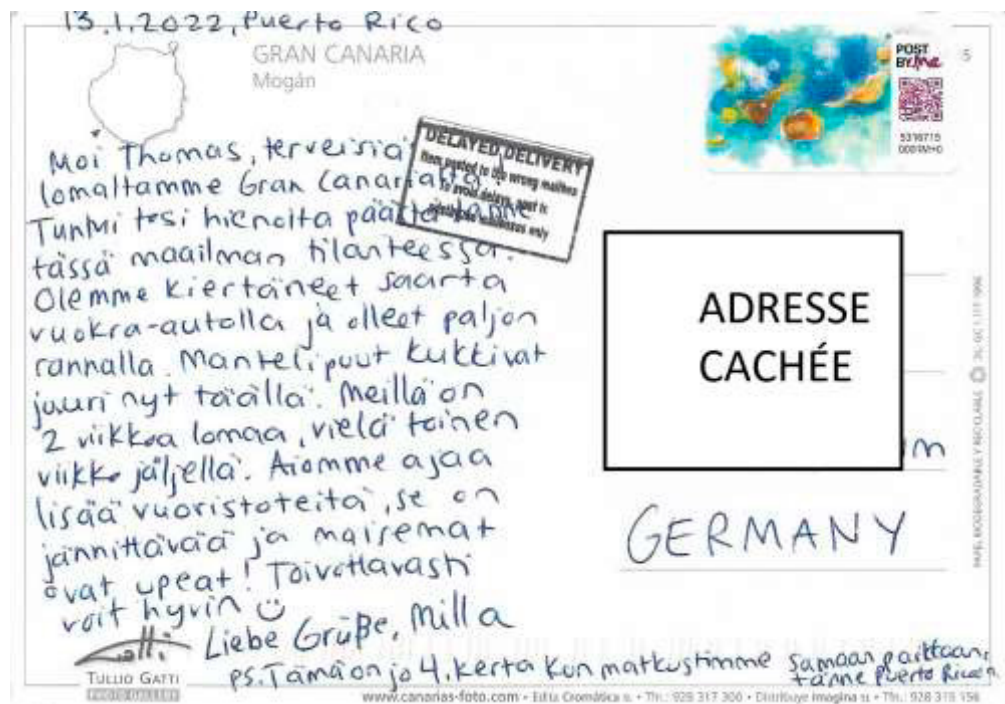 13.1.2022, Puerto Rico
GRAN CANARIA
Mogán
POST
BY
5
5316715
DELAYED DELIVERY
Item posted in the wrong mailbox
To avoid delays, post in
only
Moi Thomas, terveisiä
lomaltamme Gran Canarialta!
Tuntui tosi hienolta päästä tänne
tässä maailman tilanteessa.
Olemme kiertäneet saarta
vuokra-autolla ja olleet paljon
rannalla. Mantelipuut kukkivat
juuri nyt täällä. Meillä on
2 viikkoa lomaa, vielä toinen
viikko jäljellä. Aiomme ajaa
lisää vuoristoteitä, se on
jännittävää ja maisemat
ovat upeat! Toivottavasti
voit hyvin
Liebe Grüße, Milla
ps. Tämä on jo 4. kerta kun matkustimme samaan paikkaan,
tänne Puerto Ricoon
ADRESSE
CACHÉE
m
GERMANY
TULLIO GATTI
PHOTO GALLERY
www.canarias-foto.com • Edita Cromática • Tfn.: 928 317 300 • Distribuye Imagina • Tfn.: 928 319 156
PAPEL BIODEGRADABLE Y RECICLABLE